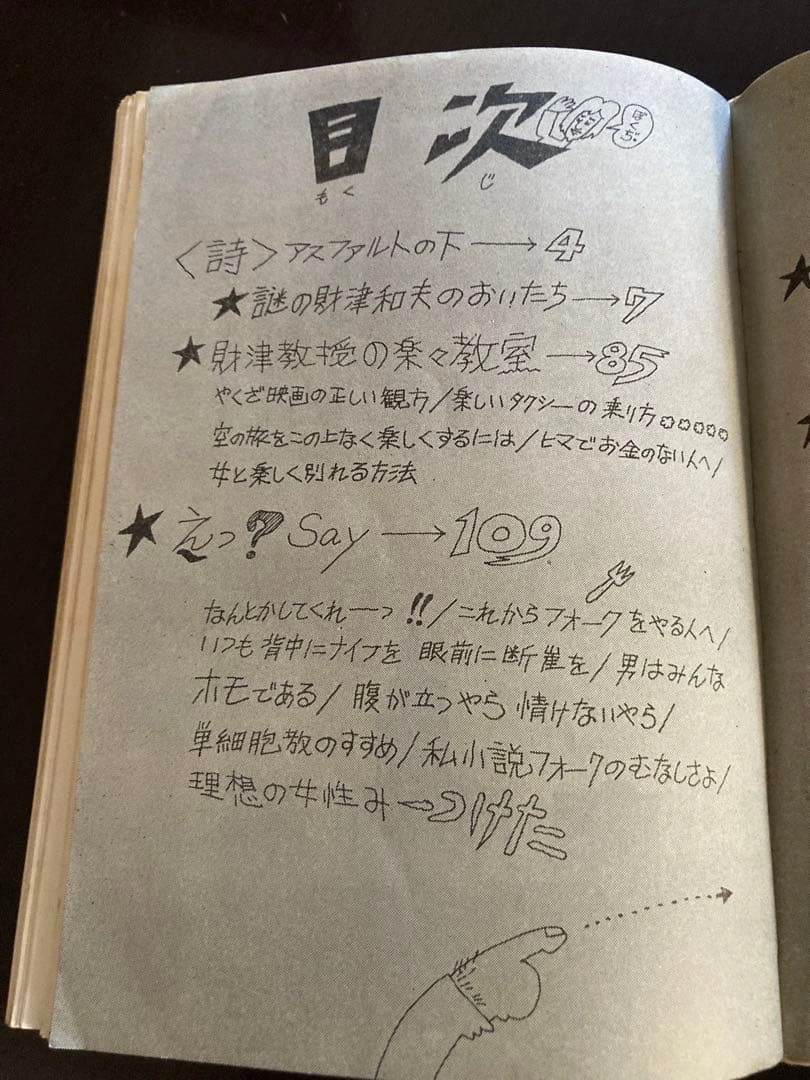 目次
もくじ
ぼくぢ
〈詩〉アスファルトの下→4
★謎の財津和夫のおいたち→7
★財津教授の楽々教室→85
やくざ映画の正しい観方/楽しいタクシーの乗り方
空の旅をこの上なく楽しくするには/ヒマでお金のない人へ/
女と楽しく別れる方法
★えっ?Say→109
なんとかしてくれーっ!!/これからフォークをやる人へ/
いつも背中にナイフを 眼前に断崖を/男はみんな
ホモである/腹が立つやら 情けないやら/
単細胞教のすすめ/私小説フォークのむなしさよ/
理想の女性み→つけた